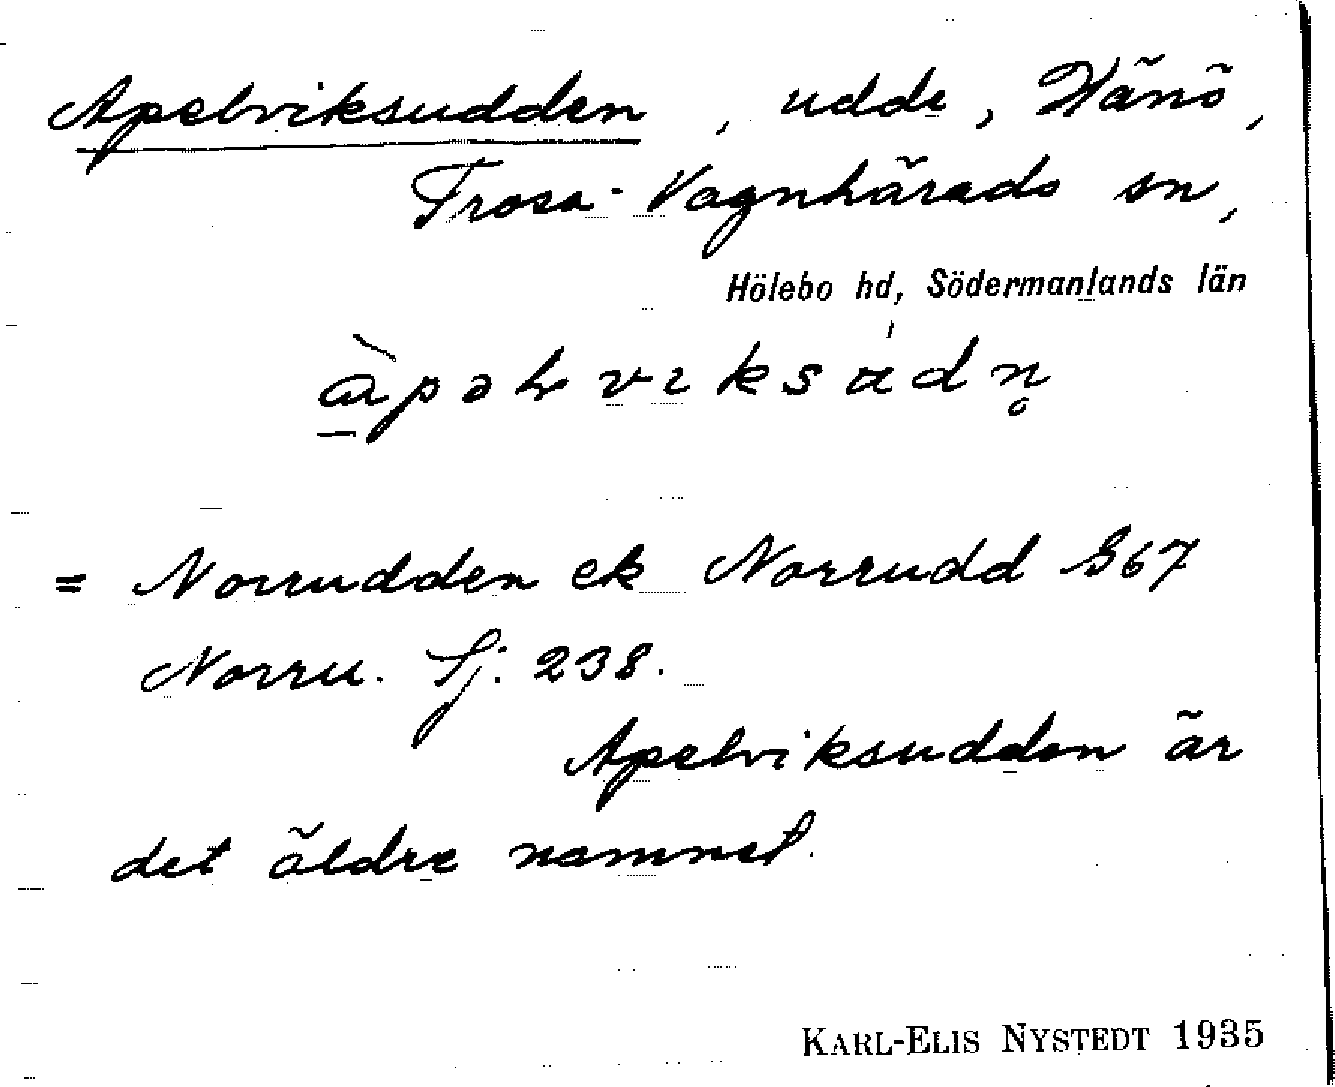 Apelviksudden, udde, Hänö,
Trosa-Vagnhärads sn,
Hölebo hd, Södermanlands län
= Norrudden ek Norrudd G67
Norru. Sj. 238.
Apelviksudden är
det äldre namnet.
KARL-ELIS NYSTEDT 1935